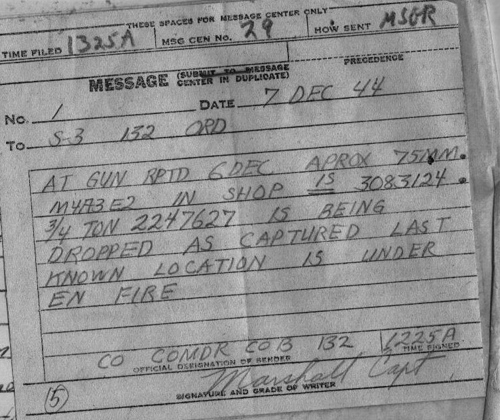 THESE SPACES FOR MESSAGE CENTER ONLY
TIME FILED 1325A MSG CEN NO. 29 HOW SENT MSGR
MESSAGE (SUBMIT TO MESSAGE CENTER IN DUPLICATE) PRECEDENCE
No. 1 DATE 7 DEC 44
To S-3 132 ORD
AT GUN RPTD 6 DEC APROX 75MM.
M4A3E2 IN SHOP IS 3083124.
3/4 TON 2247627 IS BEING
DROPPED AS CAPTURED LAST
KNOWN LOCATION IS UNDER
EN FIRE
CO COMDR CO B 132 1225A
OFFICIAL DESIGNATION OF SENDER TIME SIGNED
Marshall Capt
SIGNATURE AND GRADE OF WRITER
(5)